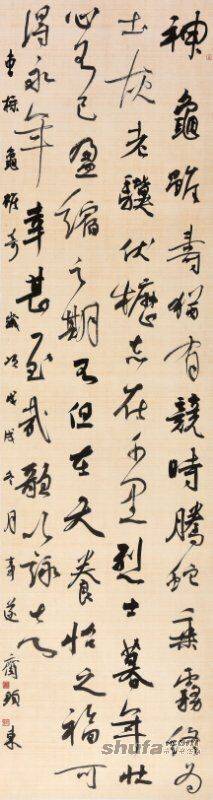 神龜雖壽猶有競時騰蛇乘霧終為
土灰老驥伏櫪志在千里烈士暮年壯
心不已盈縮之期不但在天養怡之福可
得永年幸甚至哉歌以詠志
曹操龜雖壽歲次戊戌冬月
shufa